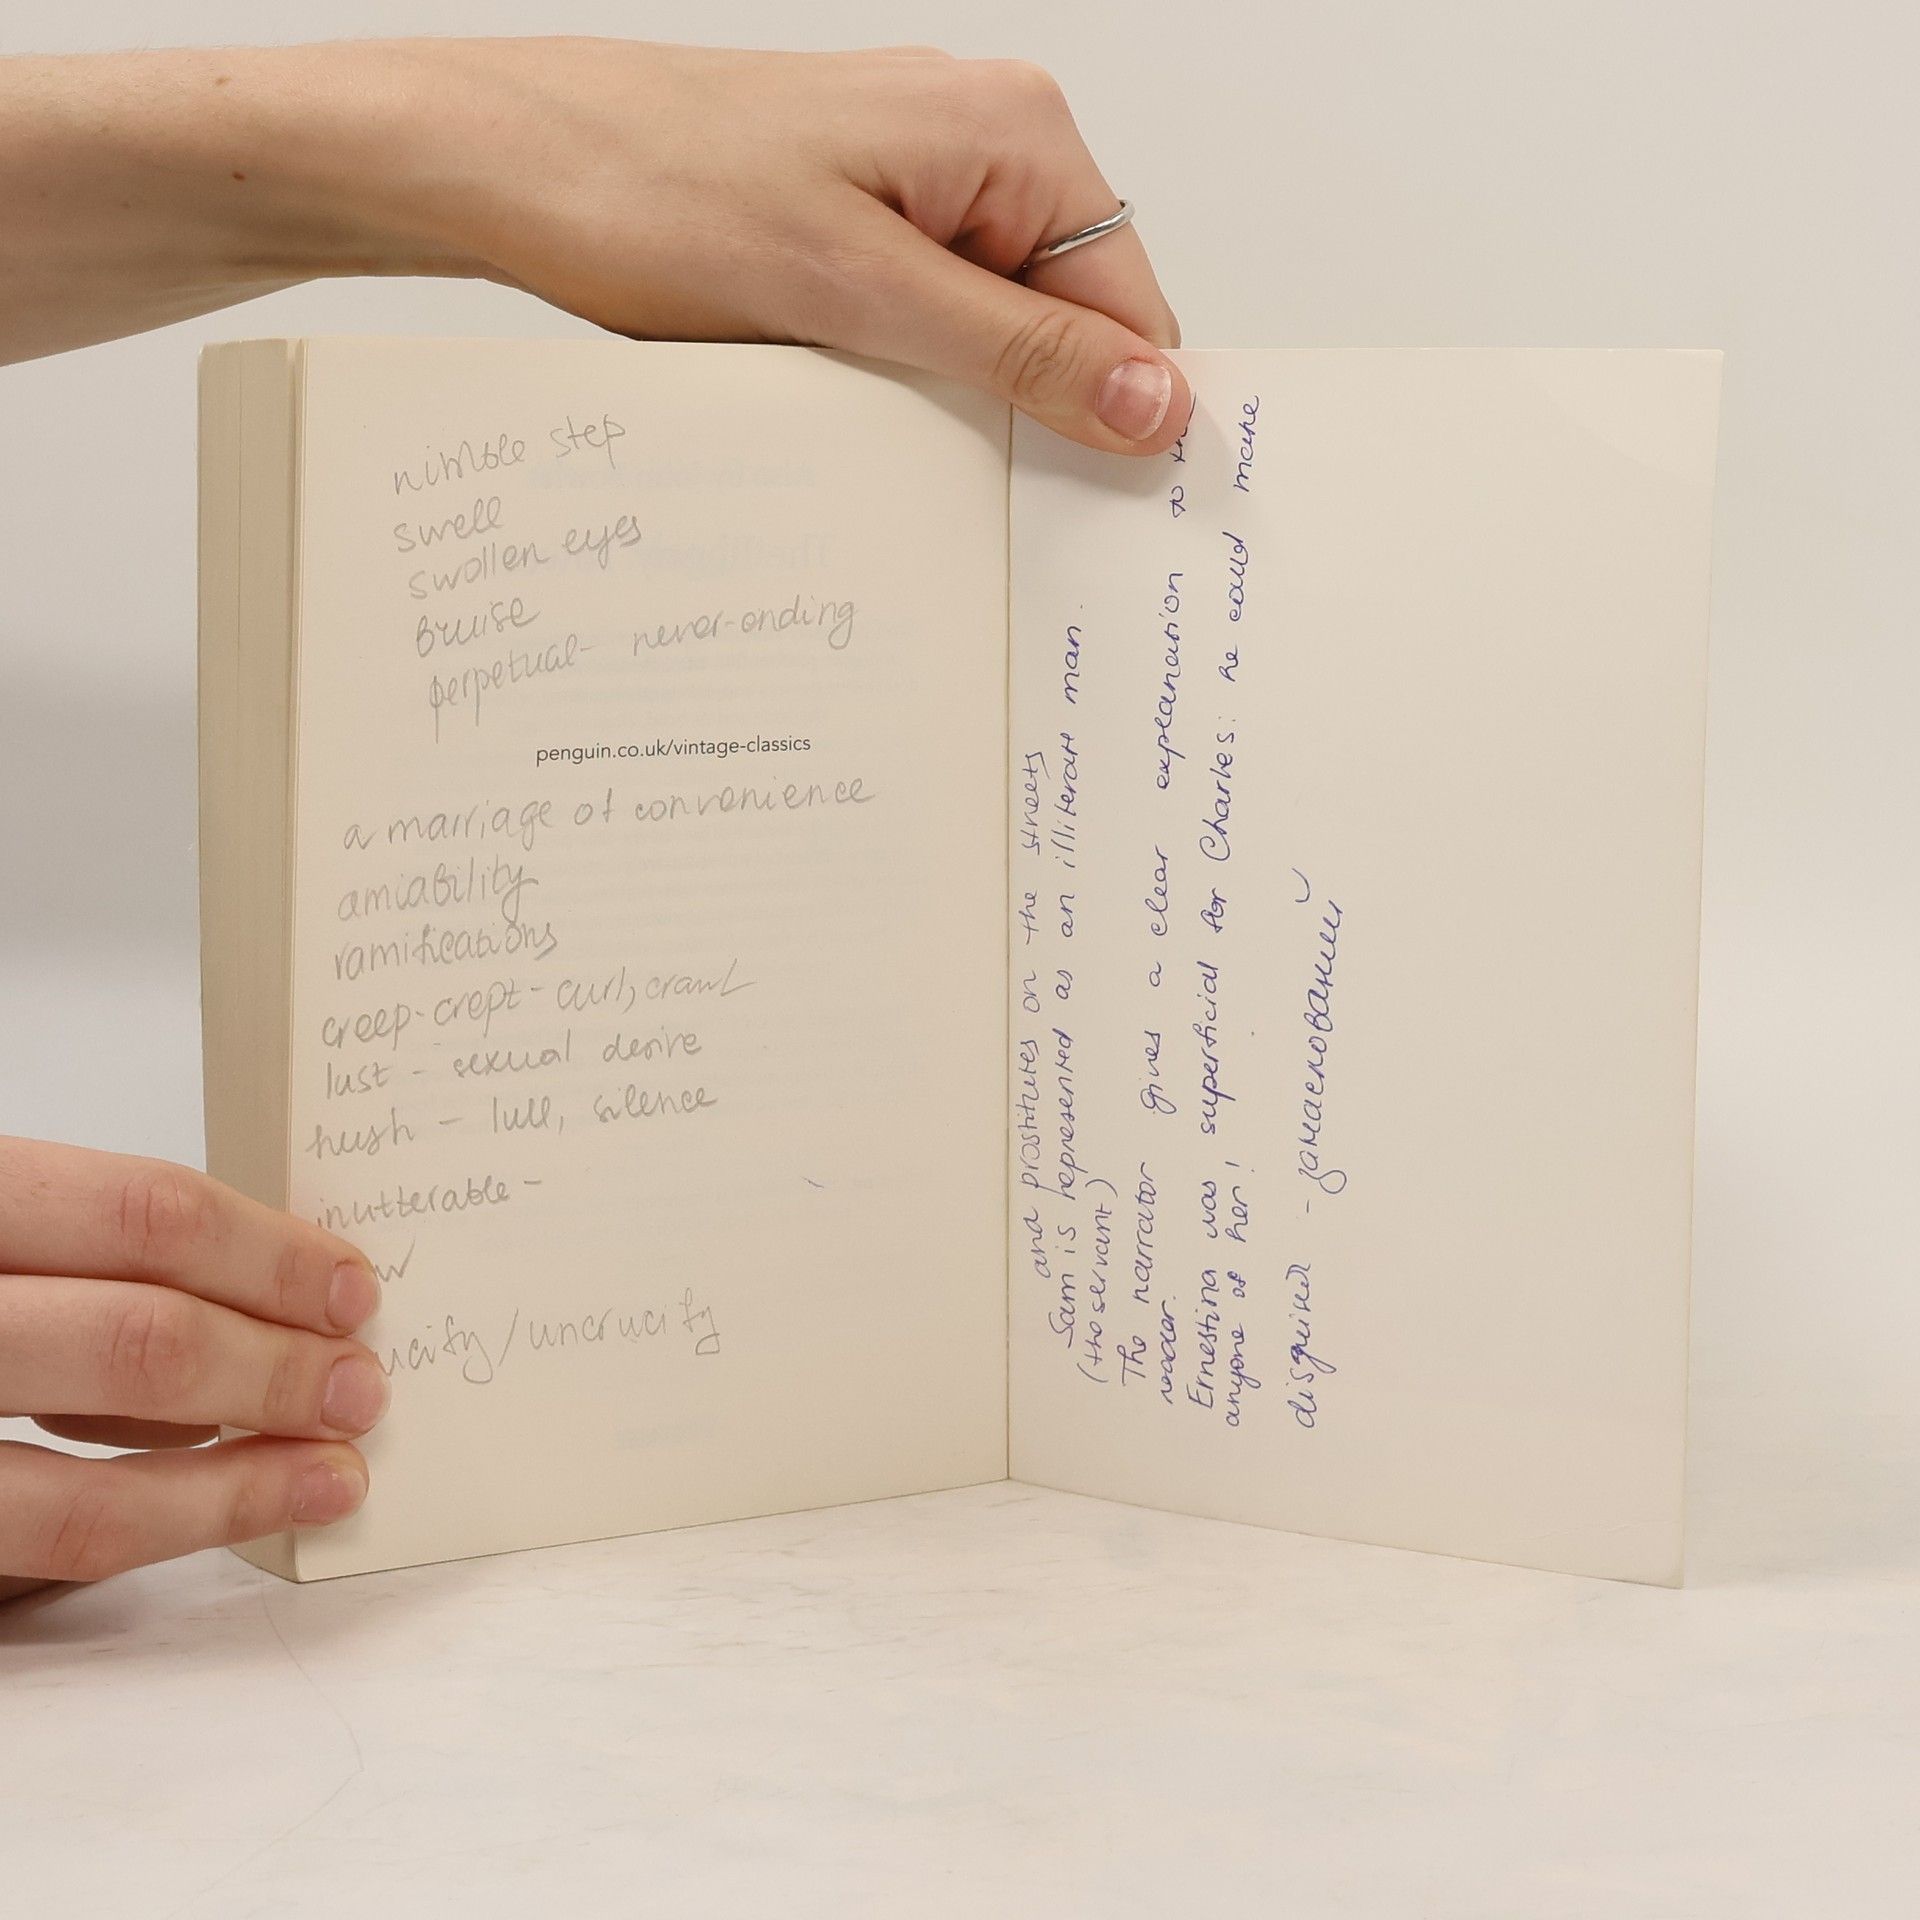 nimble step
swell
swollen eyes
bruise
perpetual - never-ending
penguin.co.uk/vintage-classics
a marriage of convenience
amiability
ramifications
creep-crept - curl, crawl
lust - sexual desire
hush - lull, silence
inutterable -
ucify / uncrucify
and prostitutes on the streets
Sam is represented as an illiterate man.
(the servant)
The narrator gives a clear explanation to
reader.
Ernestina was superficial for Charles: he could make
anyone of her!
disguised - замаскований